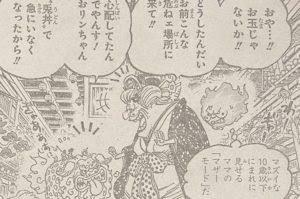 おや…!!
お玉じゃ
ないか!!
どうしたんだい
お前こんな
危ねェ場所に
来て!!
心配してたん
でやんす!
おリンちゃん
兎丼で
急にいなく
なったから!!
マズイな
10歳以下
にまれに
見せる
ママの
「マザー
モード」だ